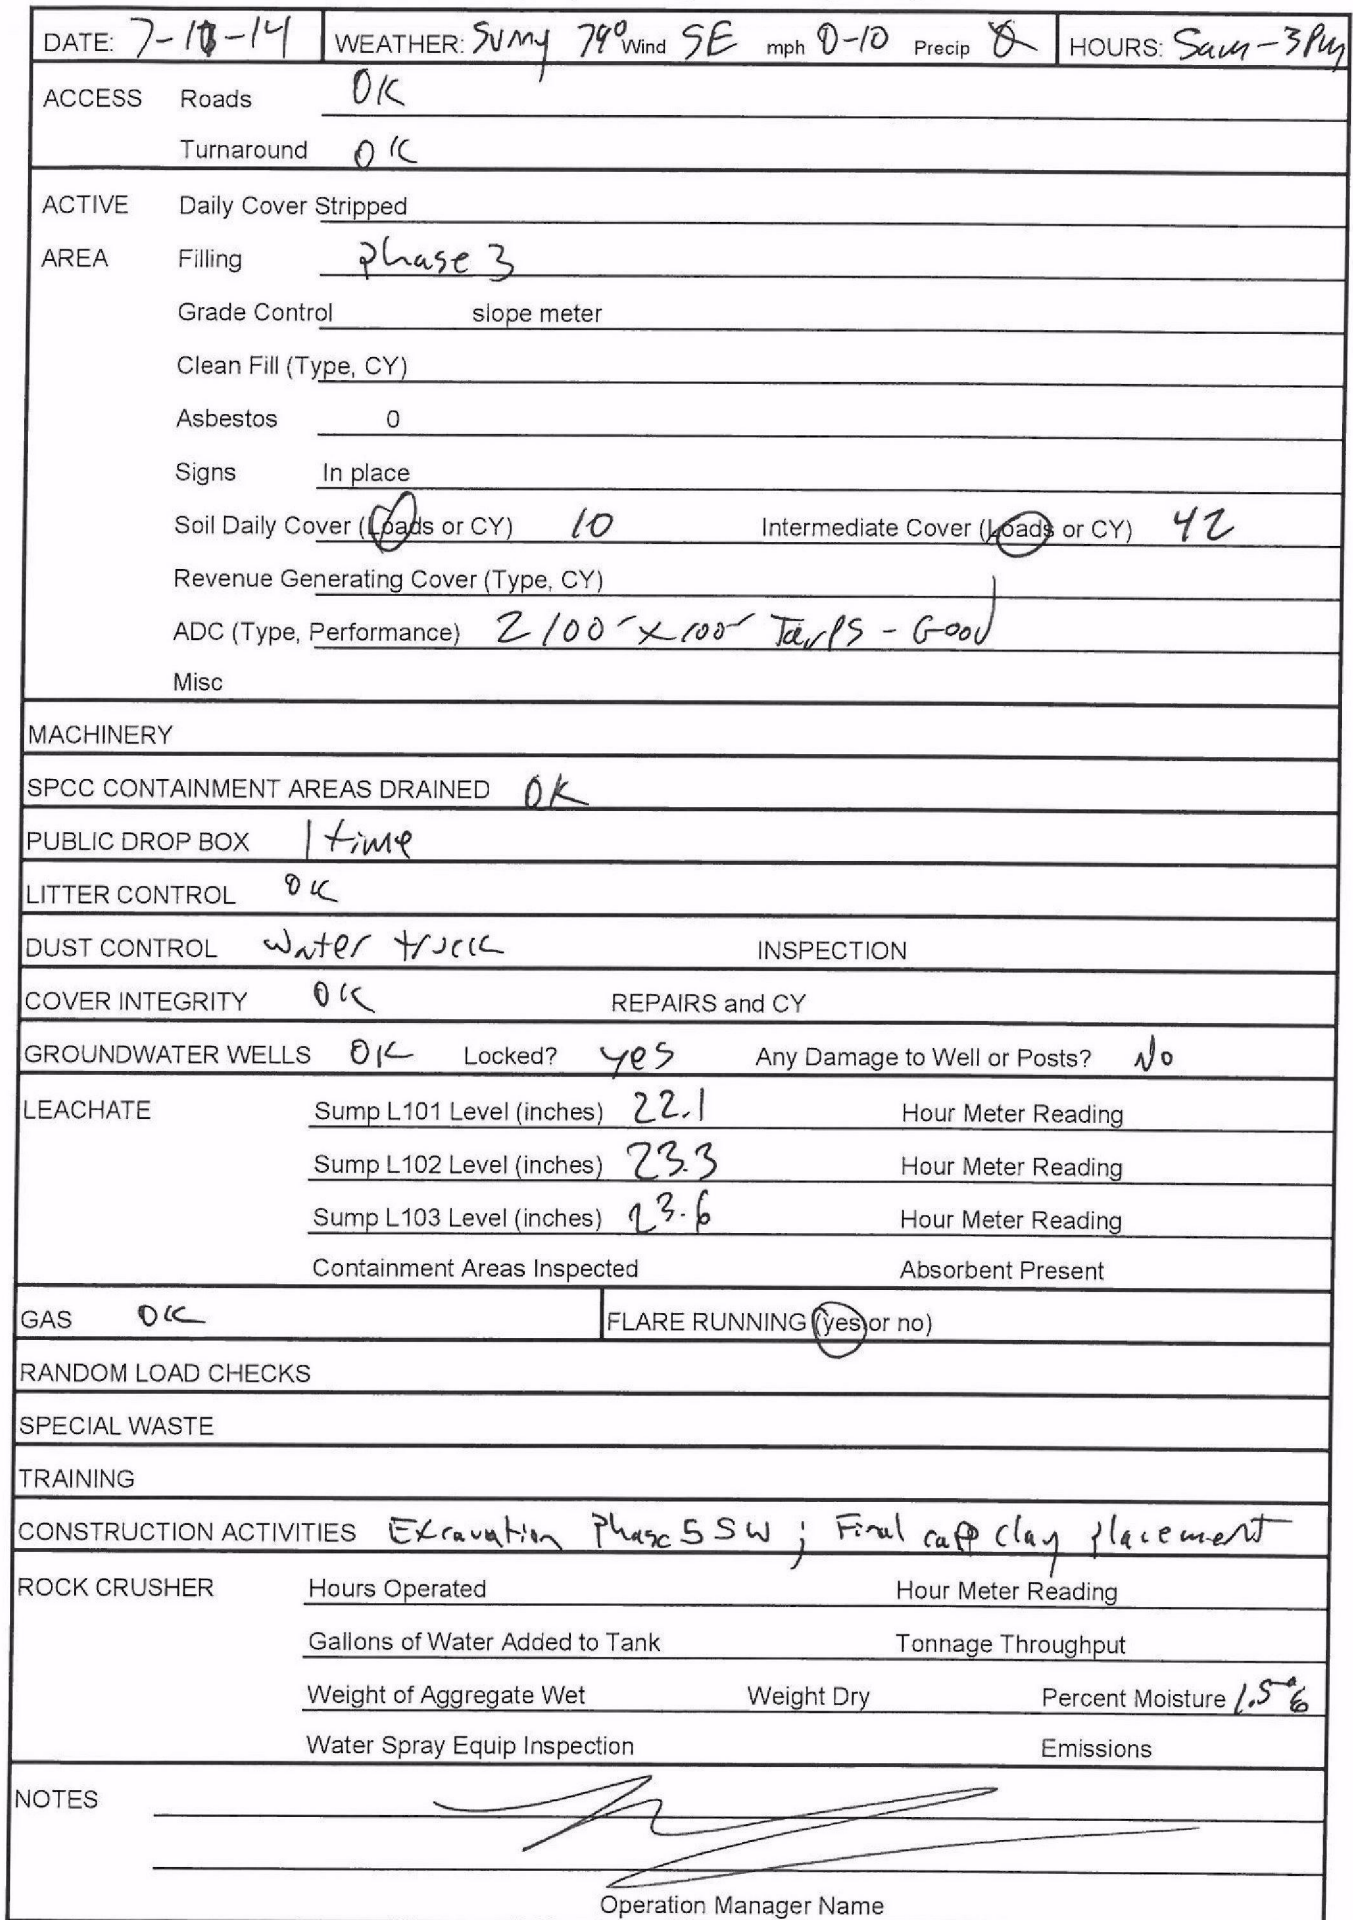 DATE: 7-10-14 WEATHER: Sunny 79° Wind SE mph 0-10 Precip 0 HOURS: 5am-3Pm
ACCESS Roads OK
Turnaround OK
ACTIVE Daily Cover Stripped
AREA Filling phase 3
Grade Control slope meter
Clean Fill (Type, CY)
Asbestos 0
Signs In place
Soil Daily Cover (Loads or CY) 10 Intermediate Cover (Loads or CY) 42
Revenue Generating Cover (Type, CY)
ADC (Type, Performance) 2 100' x 100' Tarps - Good
Misc
MACHINERY
SPCC CONTAINMENT AREAS DRAINED OK
PUBLIC DROP BOX 1 time
LITTER CONTROL OK
DUST CONTROL water truck INSPECTION
COVER INTEGRITY OK REPAIRS and CY
GROUNDWATER WELLS OK Locked? yes Any Damage to Well or Posts? No
LEACHATE Sump L101 Level (inches) 22.1 Hour Meter Reading
Sump L102 Level (inches) 23.3 Hour Meter Reading
Sump L103 Level (inches) 23.6 Hour Meter Reading
Containment Areas Inspected Absorbent Present
GAS OK FLARE RUNNING (yes or no)
RANDOM LOAD CHECKS
SPECIAL WASTE
TRAINING
CONSTRUCTION ACTIVITIES Excavation Phase 5 SW ; Final capp clay placement
ROCK CRUSHER Hours Operated Hour Meter Reading
Gallons of Water Added to Tank Tonnage Throughput
Weight of Aggregate Wet Weight Dry Percent Moisture 1.5%
Water Spray Equip Inspection Emissions
NOTES
Operation Manager Name